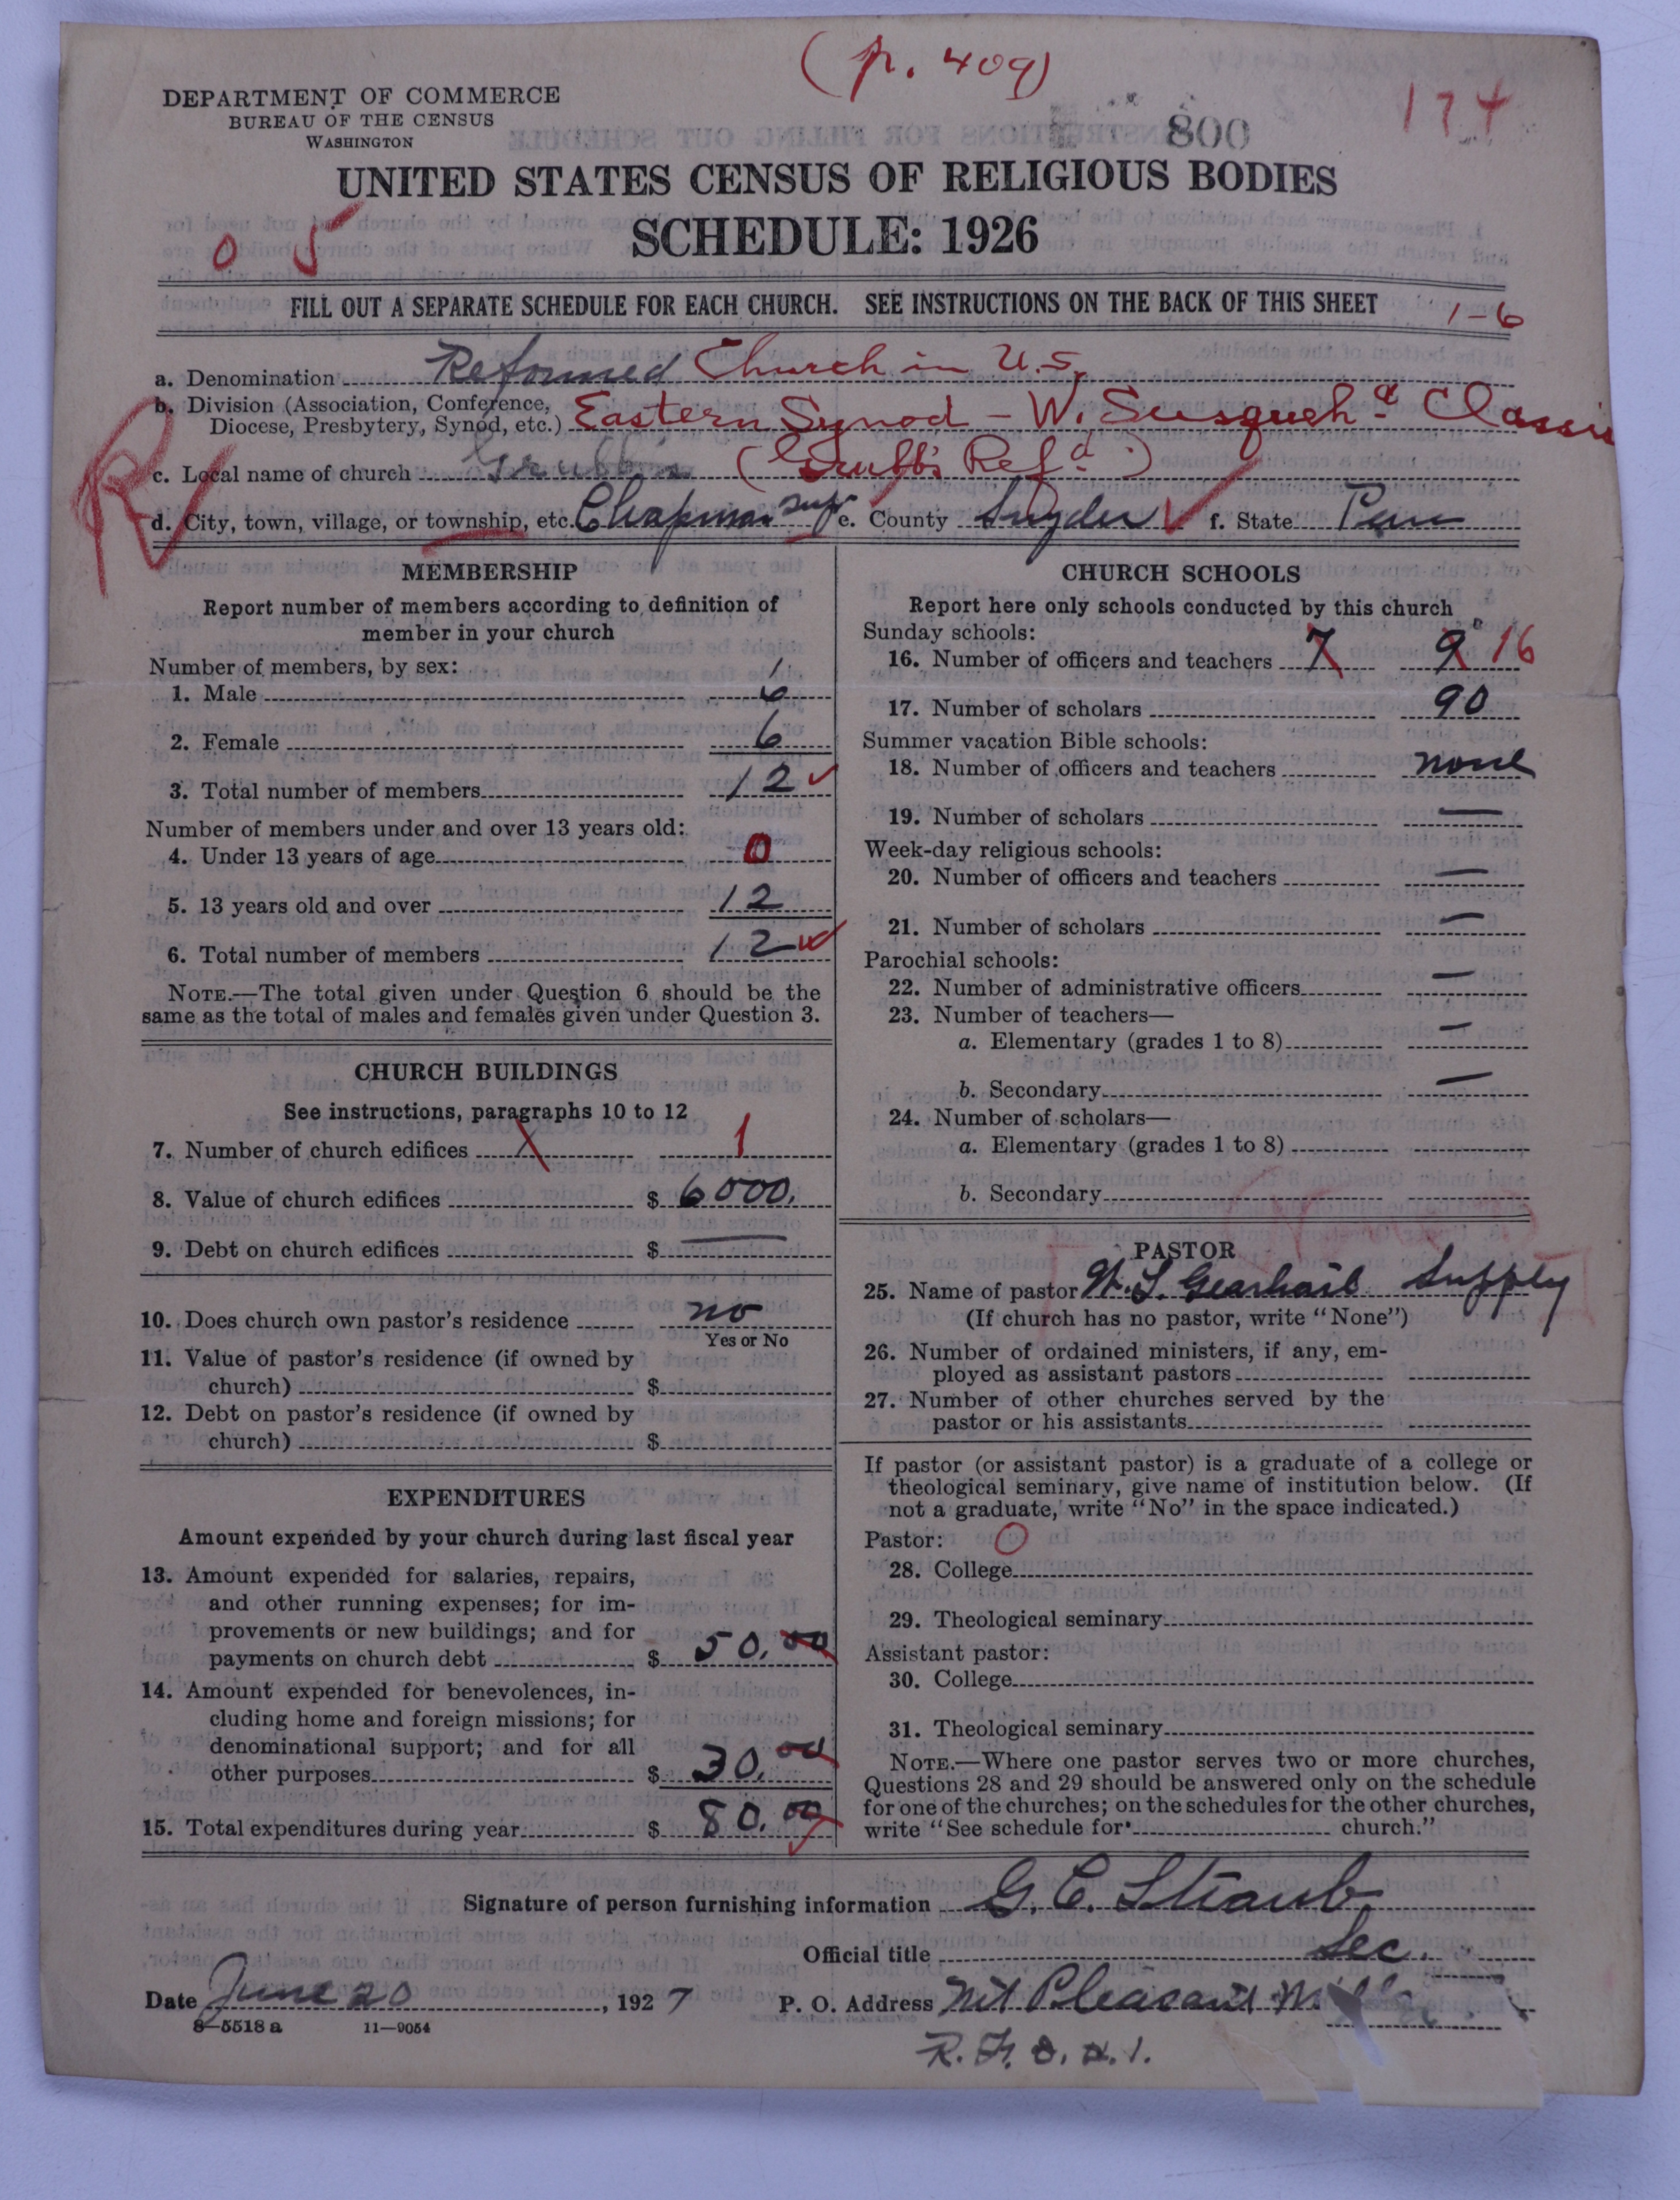 (p. 409)
174
DEPARTMENT OF COMMERCE
BUREAU OF THE CENSUS
WASHINGTON
800
UNITED STATES CENSUS OF RELIGIOUS BODIES
SCHEDULE: 1926
0 5
FILL OUT A SEPARATE SCHEDULE FOR EACH CHURCH. SEE INSTRUCTIONS ON THE BACK OF THIS SHEET
1-6
a. Denomination Reformed Church in U.S.
b. Division (Association, Conference, Diocese, Presbytery, Synod, etc.) Eastern Synod - W. Susqueh a Classis
c. Local name of church Grubbs (Grubb's Ref d.)
R
d. City, town, village, or township, etc. Chapman Twp e. County Snyder f. State Penn
MEMBERSHIP
Report number of members according to definition of
member in your church
Number of members, by sex:
1. Male 6
2. Female 6
3. Total number of members 12
Number of members under and over 13 years old:
4. Under 13 years of age 0
5. 13 years old and over 12
6. Total number of members 12
NOTE.—The total given under Question 6 should be the
same as the total of males and females given under Question 3.
CHURCH BUILDINGS
See instructions, paragraphs 10 to 12
7. Number of church edifices 1
8. Value of church edifices $ 6000.
9. Debt on church edifices $ —
10. Does church own pastor's residence no
Yes or No
11. Value of pastor's residence (if owned by
church) $
12. Debt on pastor's residence (if owned by
church) $
EXPENDITURES
Amount expended by your church during last fiscal year
13. Amount expended for salaries, repairs,
and other running expenses; for im-
provements or new buildings; and for
payments on church debt $ 50.00
14. Amount expended for benevolences, in-
cluding home and foreign missions; for
denominational support; and for all
other purposes $ 30.00
15. Total expenditures during year $ 80.00
CHURCH SCHOOLS
Report here only schools conducted by this church
Sunday schools:
16. Number of officers and teachers 7 9 16
17. Number of scholars 90
Summer vacation Bible schools:
18. Number of officers and teachers none
19. Number of scholars —
Week-day religious schools:
20. Number of officers and teachers —
21. Number of scholars —
Parochial schools:
22. Number of administrative officers —
23. Number of teachers—
a. Elementary (grades 1 to 8) —
b. Secondary —
24. Number of scholars—
a. Elementary (grades 1 to 8)
b. Secondary
PASTOR
25. Name of pastor W. S. Gearhart Supply
(If church has no pastor, write "None")
26. Number of ordained ministers, if any, em-
ployed as assistant pastors
27. Number of other churches served by the
pastor or his assistants
If pastor (or assistant pastor) is a graduate of a college or
theological seminary, give name of institution below. (If
not a graduate, write "No" in the space indicated.)
Pastor: 0
28. College
29. Theological seminary
Assistant pastor:
30. College
31. Theological seminary
NOTE.—Where one pastor serves two or more churches,
Questions 28 and 29 should be answered only on the schedule
for one of the churches; on the schedules for the other churches,
write "See schedule for church."
Signature of person furnishing information G. C. Straub
Official title Sec.
Date June 20, 1927 P. O. Address Mt Pleasant Mills
8—5518 a 11—9054
R. F. D. # 1.